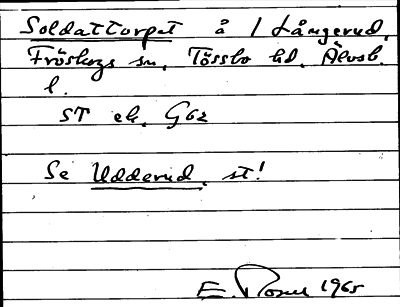 Soldattorpet å 1 Långerud,
Fröskogs sn, Tössbo hd, Älvsb.
l.
ST ek. G62
Se Udderud, st!
E. 1965